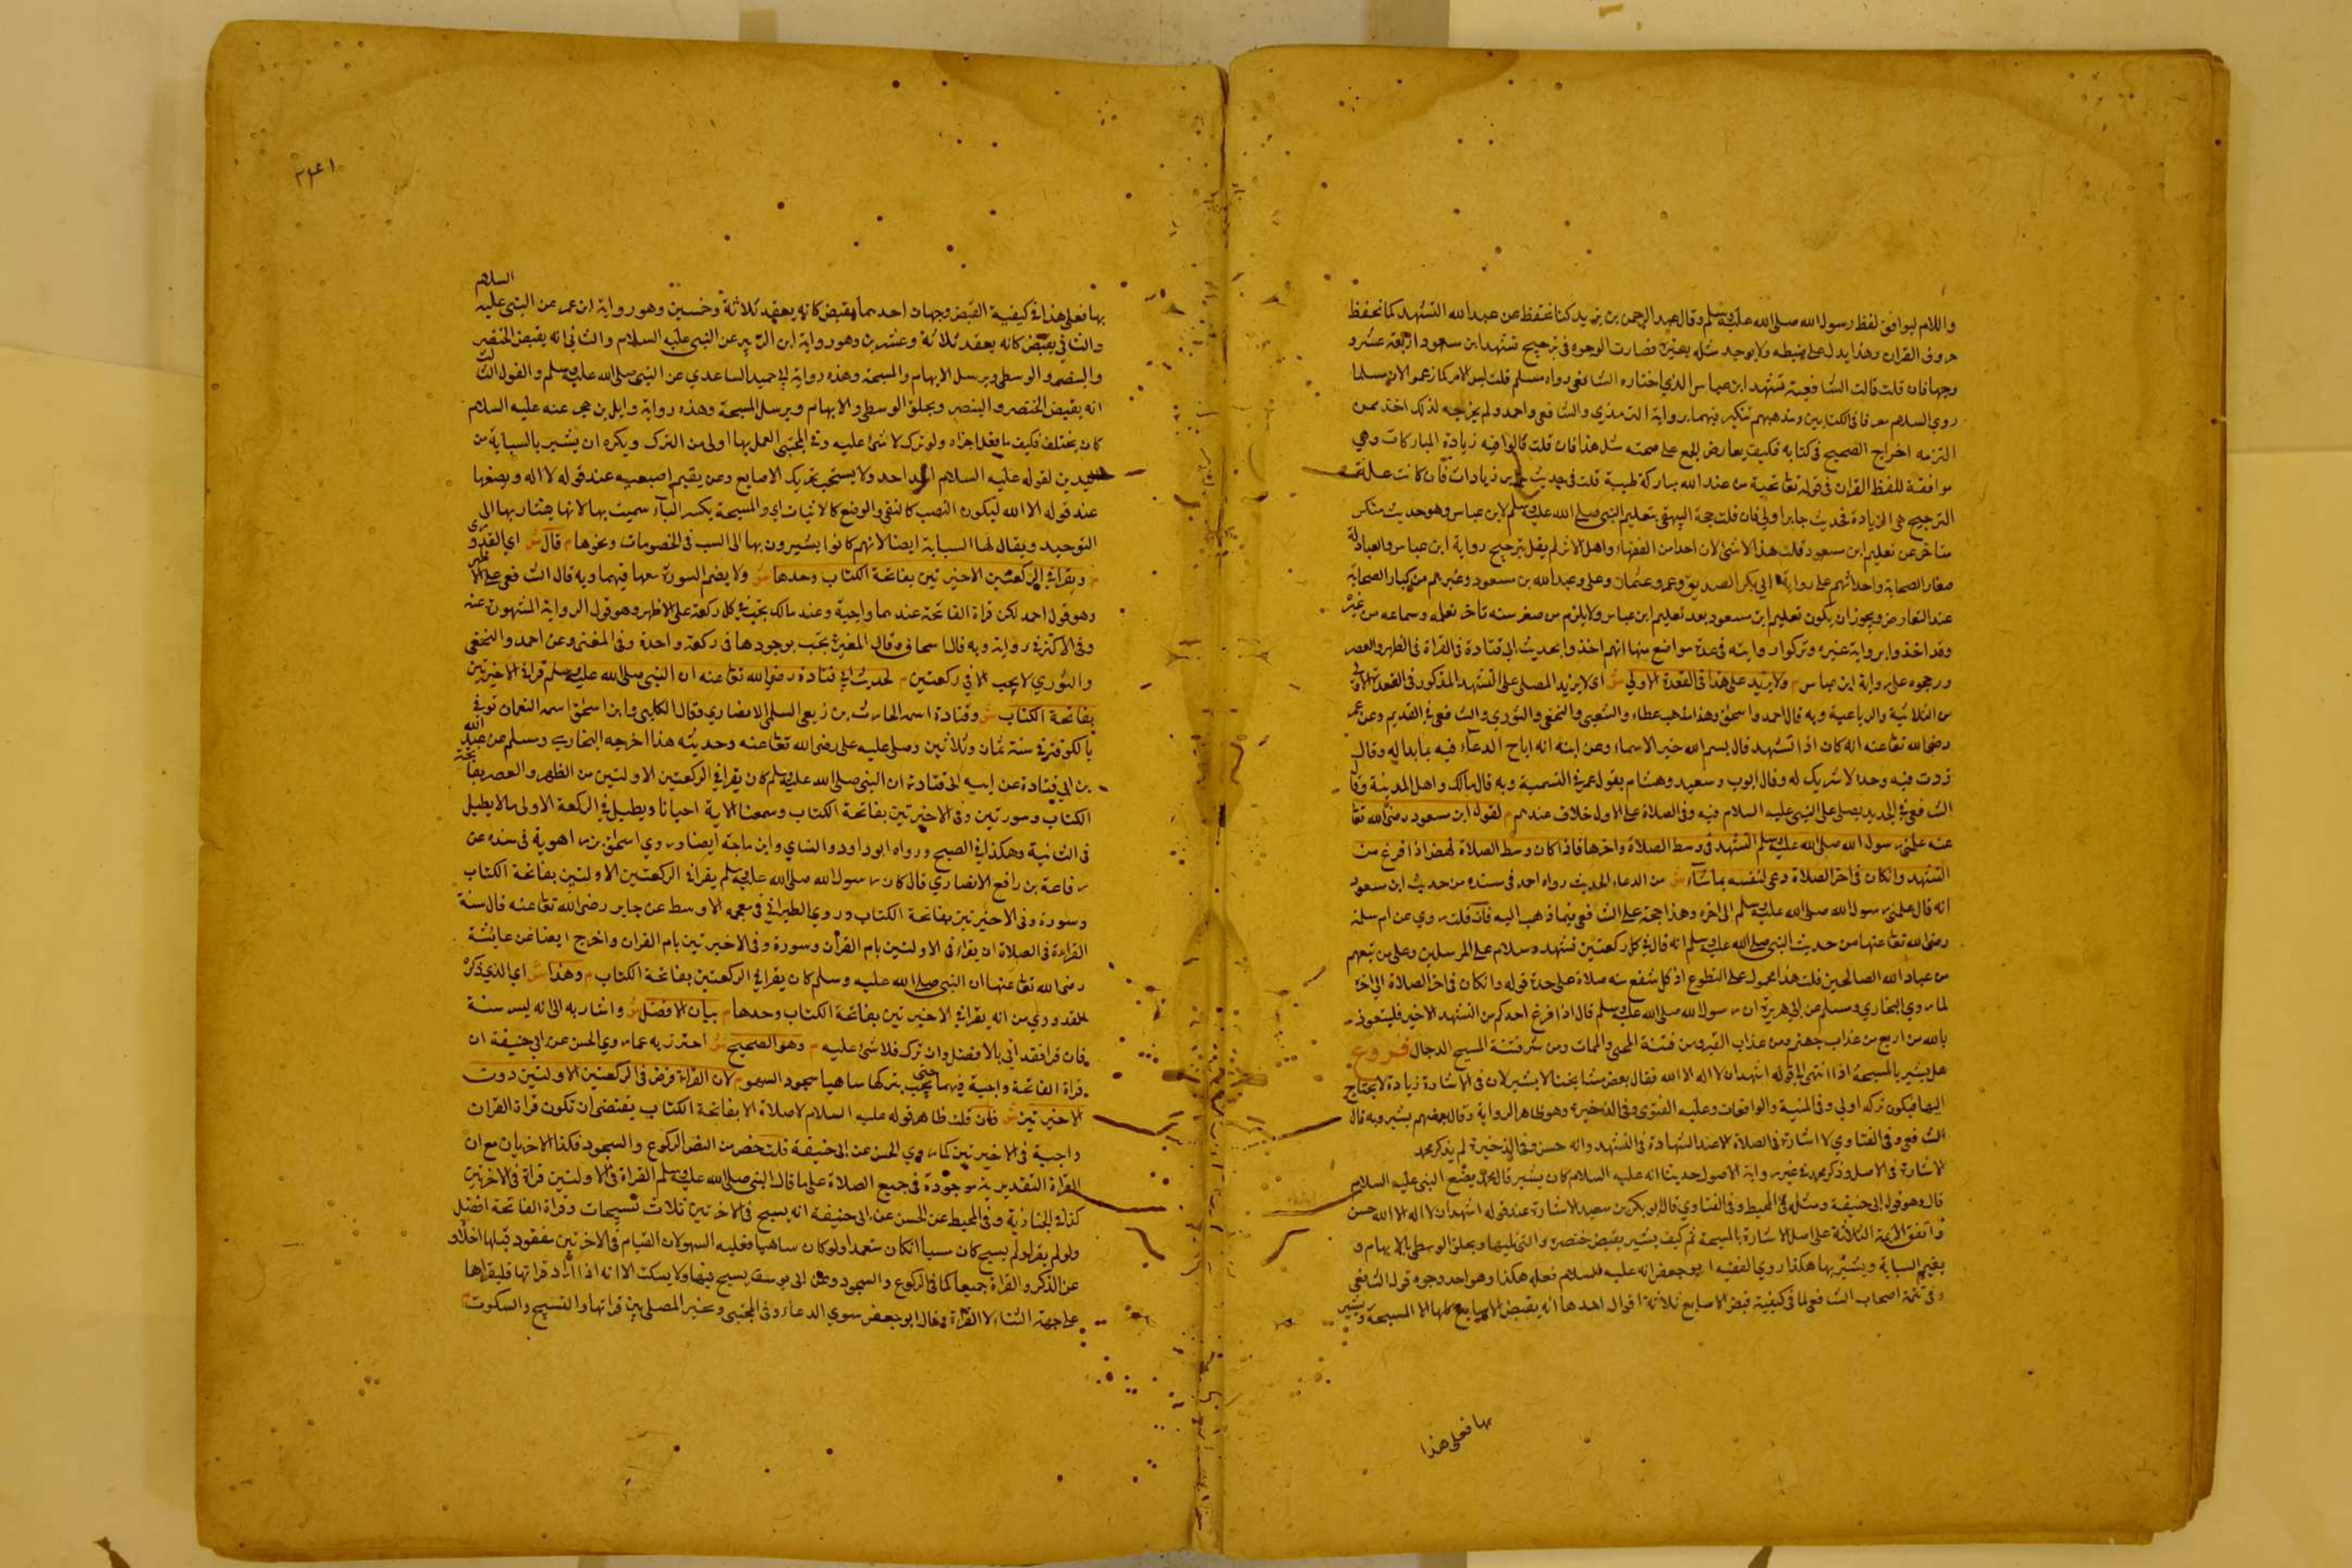 واللام ليوافق لفظ رسول الله صلى الله عليه وسلم وقال عبد الرحمن بن يزيد كنا نتحفظ عن عبد الله التشهد كما نحفظ
حروف القران وهذا يدل على ضبطه ولا يوجد مثله بغيره فصارت الوجوه في ترجيح تشهد ابن مسعود اربعة عشر و
وجها فان قلت قالت الشافعية تشهد ابن عباس الذي اختاره الشافعي رواه مسلم قلت ليس الامر كما زعموا لان مسلما
روي السلام معرفا في الكتابين ومذهبهم تنكير فيهما برواية الترمذي والشافعي واحمد ولم يخرجه لذلك احد ممن
التزمه اخراج الصحيح في كتابه فكيف يعارض الجمع على صحته مثل هذا فان قلت قالوا فيه زيادة المباركات وهي
موافقة للفظ القران في قوله تعا تحية من عند الله مباركة طيبة قلت في حديث جابر زيادات فان كانت علة
الترجيح هي الزيادة فحديث جابر اولي فان قلت حجة البيهقي بتعليم النبي صلى الله عليه وسلم لابن عباس وهو حديث منكر
متاخر عن تعليم ابن مسعود قلت هذا لا شئ لان احدا من الفقهاء واهل الاثر لم يقل بترجيح رواية ابن عباس والعبادلة
صغار الصحابة واحداثهم على رواية ابي بكر الصديق وعمر وعثمان وعلي وعبد الله بن مسعود وغيرهم من كبار الصحابة
عند التعارض ويجوز ان يكون تعليم ابن مسعود بعد تعليم ابن عباس ولا يلزم من صغر سنه تاخر تعلمه وسماعه من غيره
وقد اخذوا برواية غيره وتركوا روايته في عدة مواضع منها انهم اخذوا بحديث ابي قتادة في القراة في الظهر والعصر
ورجحوه على رواية ابن عباس م ولا يزيد على هذا في القعدة الاولي ش اي لا يزيد المصلي على التشهد المذكور في القعدة الاولي
من الثلاثية والرباعية وبه قال احمد واسحق وهذا مذهب عطاء والشعبي والنخعي والثوري والشافعي في القديم وعن عمر
رضى الله تعا عنه انه كان اذا تشهد قال بسم الله خير الاسماء وعن ابنه انه اباح الدعاء فيه بما بدا له وقال
زدت فيه وحده لا شريك له وقال ايوب وسعيد وهشام بقول عمر في التسمية وبه قال مالك واهل المدينة وقال
الشافعي في الجديد يصلي على النبي عليه السلام فيه وفي الصلاة على الاول خلاف عندهم م لقول ابن مسعود رضى الله تعا
عنه علمني رسول الله صلى الله عليه وسلم التشهد في وسط الصلاة واخرها فاذا كان وسط الصلاة نهض اذا فرغ من
التشهد واذا كان في اخر الصلاة دعى لنفسه بما شاء ش من الدعاء الحديث رواه احمد في مسنده من حديث ابن مسعود
انه قال علمني رسول الله صلى الله عليه وسلم الى اخره وهذا حجة على الشافعي فيما ذهب اليه فان قلت روي عن ام سلمة
رضى الله تعا عنها من حديث النبي صلى الله عليه وسلم انه قال في كل ركعتين تشهد وسلام على المرسلين وعلى من تبعهم
من عباد الله الصالحين قلت هذا محمول على التطوع اذ كل شفع منه صلاة على حدة قوله واذا كان في اخر الصلاة الى اخره
لما روي البخاري ومسلم عن ابي هريرة ان رسول الله صلى الله عليه وسلم قال اذا فرغ احدكم من التشهد الاخير فليتعوذ
بالله من اربع من عذاب جهنم ومن عذاب القبر ومن فتنة المحيى والممات ومن شر فتنة المسيح الدجال فروع
هل يشير بالمسبحة اذا انتهى الى قوله اشهد ان لا اله الا الله فقال بعض مشايخنا لا يشير لان في الاشارة زيادة لا يحتاج
اليها فيكون تركه اولي وفي المنية والواقعات وعليه الفتوى وفي الذخيرة وهو ظاهر الرواية وقال بعضهم يشير وبه قال
الشافعي وفي الفتاوي لا اشارة في الصلاة الا عند الشهادة في التشهد وانه حسن وفي الذخيرة لم يذكر محمد
الاشارة في الاصل وذكر محمد في غير رواية الاصول حديثا انه عليه السلام كان يشير قال محمد يصنع النبي عليه السلام
قال وهو قول ابي حنيفة ومثله في المحيط وفي الفتاوي قال ابو بكر بن سعيد الاشارة عند قوله اشهد ان لا اله الا الله حسن
واتفق الايمة الثلاثة على اصل الاشارة بالمسبحة ثم كيف يشير يقبض خنصره والتي تليها ويحلق الوسطى بالابهام و
يقيم السبابة ويشير بها هكذا روي الفقيه ابو جعفر انه عليه السلام فعله هكذا وهو احد وجوه قول الشافعي
وفي تتمة اصحاب الشافعي لما في كيفية قبض الاصابع ثلاثة اقوال احدها انه يقبض الاصابع كلها الا المسبحة ويشير
بها فعلى هذا
بها فعلى هذا في كيفية القبض وجهان احدهما يقبض كانه يعقد ثلاثة وخمسين وهو رواية ابن عمر عن النبي عليه السلام
والثاني يقبض كانه يعقد ثلاثة وعشرين وهو رواية ابن الزبير عن النبي عليه السلام والثاني انه يقبض الخنصر
والبنصر والوسطى ويرسل الابهام والمسبحة وهذه رواية ابي حميد الساعدي عن النبي صلى الله عليه وسلم والقول الثالث
انه يقبض الخنصر والبنصر ويحلق الوسطى والابهام ويرسل المسبحة وهذه رواية وايل بن حجر عنه عليه السلام
كان يختلف فكيف ما فعل اجزاه ولو ترك لا شئ عليه وفي المجتبى العمل بها اولى من الترك ويكره ان يشير بالسبابة من
اليدين لقوله عليه السلام احد احد ولا يستحب تحريك الاصابع وعن يقيم اصبعيه عند قوله لا اله ويضعها
عند قوله الا الله ليكون النصب كالنفي والوضع كالاثبات اي والمسبحة بكسر الباء سميت بها لانها يشار بها الى
التوحيد ويقال لها السبابة ايضا لانهم كانوا يشيرون بها الى السب في الخصومات ونحوها م قال ش اي القدوري
م ويقرا في الركعتين الاخيرتين بفاتحة الكتاب وحدها ش ولا يضم السورة معها فيهما وبه قال الشافعي على الاظهر
وهو قول احمد لكن قراة الفاتحة عندهما واجبة وعند مالك يجب في كل ركعة على الاظهر وهو قول الرواية المشهورة عنه
وفي الاكثر في رواية وبه قال اسحاق وقال المغيرة يجب بوجودها في ركعة واحدة وفي المغنى وعن احمد والنخعي
والثوري لا يجب الا في ركعتين م لحديث ابي قتادة رضى الله تعا عنه ان النبي صلى الله عليه وسلم قرا في الاخيرتين
بفاتحة الكتاب ش وقتادة اسمه الحارث بن ربعي السلمي الانصاري وقال الكلبي وابن اسحق اسمه النعمان توفي
بالكوفة في سنة ثمان وثلاثين وصلى عليه على رضى الله تعا عنه وحديثه هذا اخرجه البخاري ومسلم عن عبد الله
بن ابي قتادة عن ابيه ابي قتادة ان النبي صلى الله عليه وسلم كان يقرا في الركعتين الاولتين من الظهر والعصر بفاتحة
الكتاب وسورتين وفي الاخيرتين بفاتحة الكتاب وسمعنا الاية احيانا ويطيل في الركعة الاولى ما لا يطيل
في الثانية وهكذا في الصبح ورواه ابو داود والنساي وابن ماجة ايضا وروي اسحق بن راهوية في مسنده عن
رفاعة بن رافع الانصاري قال كان رسول الله صلى الله عليه وسلم يقرا في الركعتين الاولتين بفاتحة الكتاب
وسورة وفي الاخيرتين بفاتحة الكتاب وروي الطبراني في معجمه الاوسط عن جابر رضى الله تعا عنه قال سنة
القراءة في الصلاة ان يقراء في الاولتين بام القرآن وسورة وفي الاخيرتين بام القران واخرج ايضا عن عايشة
رضى الله تعا عنها ان النبي صلى الله عليه وسلم كان يقرا في الركعتين بفاتحة الكتاب م وهذا ش اي الذي ذكره
القدوري من انه يقرا في الاخيرتين بفاتحة الكتاب وحدها م بيان الافضل ش واشار به الى انه ليس سنة
فان قرا فقد اتى بالافضل وان ترك فلا شئ عليه م وهو الصحيح ش احترز به عما روي الحسن عن ابي حنيفة ان
قراة الفاتحة واجبة فيهما حتى يجب بتركها ساهيا سجود السهو م لان القراة فرض في الركعتين الاولتين دون
الاخيرتين ش فان قلت ظاهر قوله عليه السلام لا صلاة الا بفاتحة الكتاب يقتضى ان تكون قراة القران
واجبة في الاخيرتين كما روي الحسن عن ابي حنيفة قلت خص من النص الركوع والسجود فكذا الاخريان مع ان
القراة التقديرية موجودة في جميع الصلاة على ما قال النبي صلى الله عليه وسلم القراة في الاولتين قراة في الاخرتين
كذا في الخبازية وفي المحيط عن الحسن عن ابي حنيفة انه يسبح في الاخرتين ثلاث تسبيحات وقراة الفاتحة افضل
ولو لم يقرا ولم يسبح كان مسيا ان كان متعمدا ولو كان ساهيا فعليه السهو لان القيام في الاخرتين مقصود قبلها اخلاؤه
عن الذكر والقراة جميعا كما في الركوع والسجود وعن ابي يوسف يسبح فيها ولا يسكت الا انه اذا اراد قراتها فليقراها
على جهة الثناء لا القراة وقال ابو جعفر سوي الدعاء وفي المجتبى وخير المصلي بين قراتها والتسبيح والسكوت م